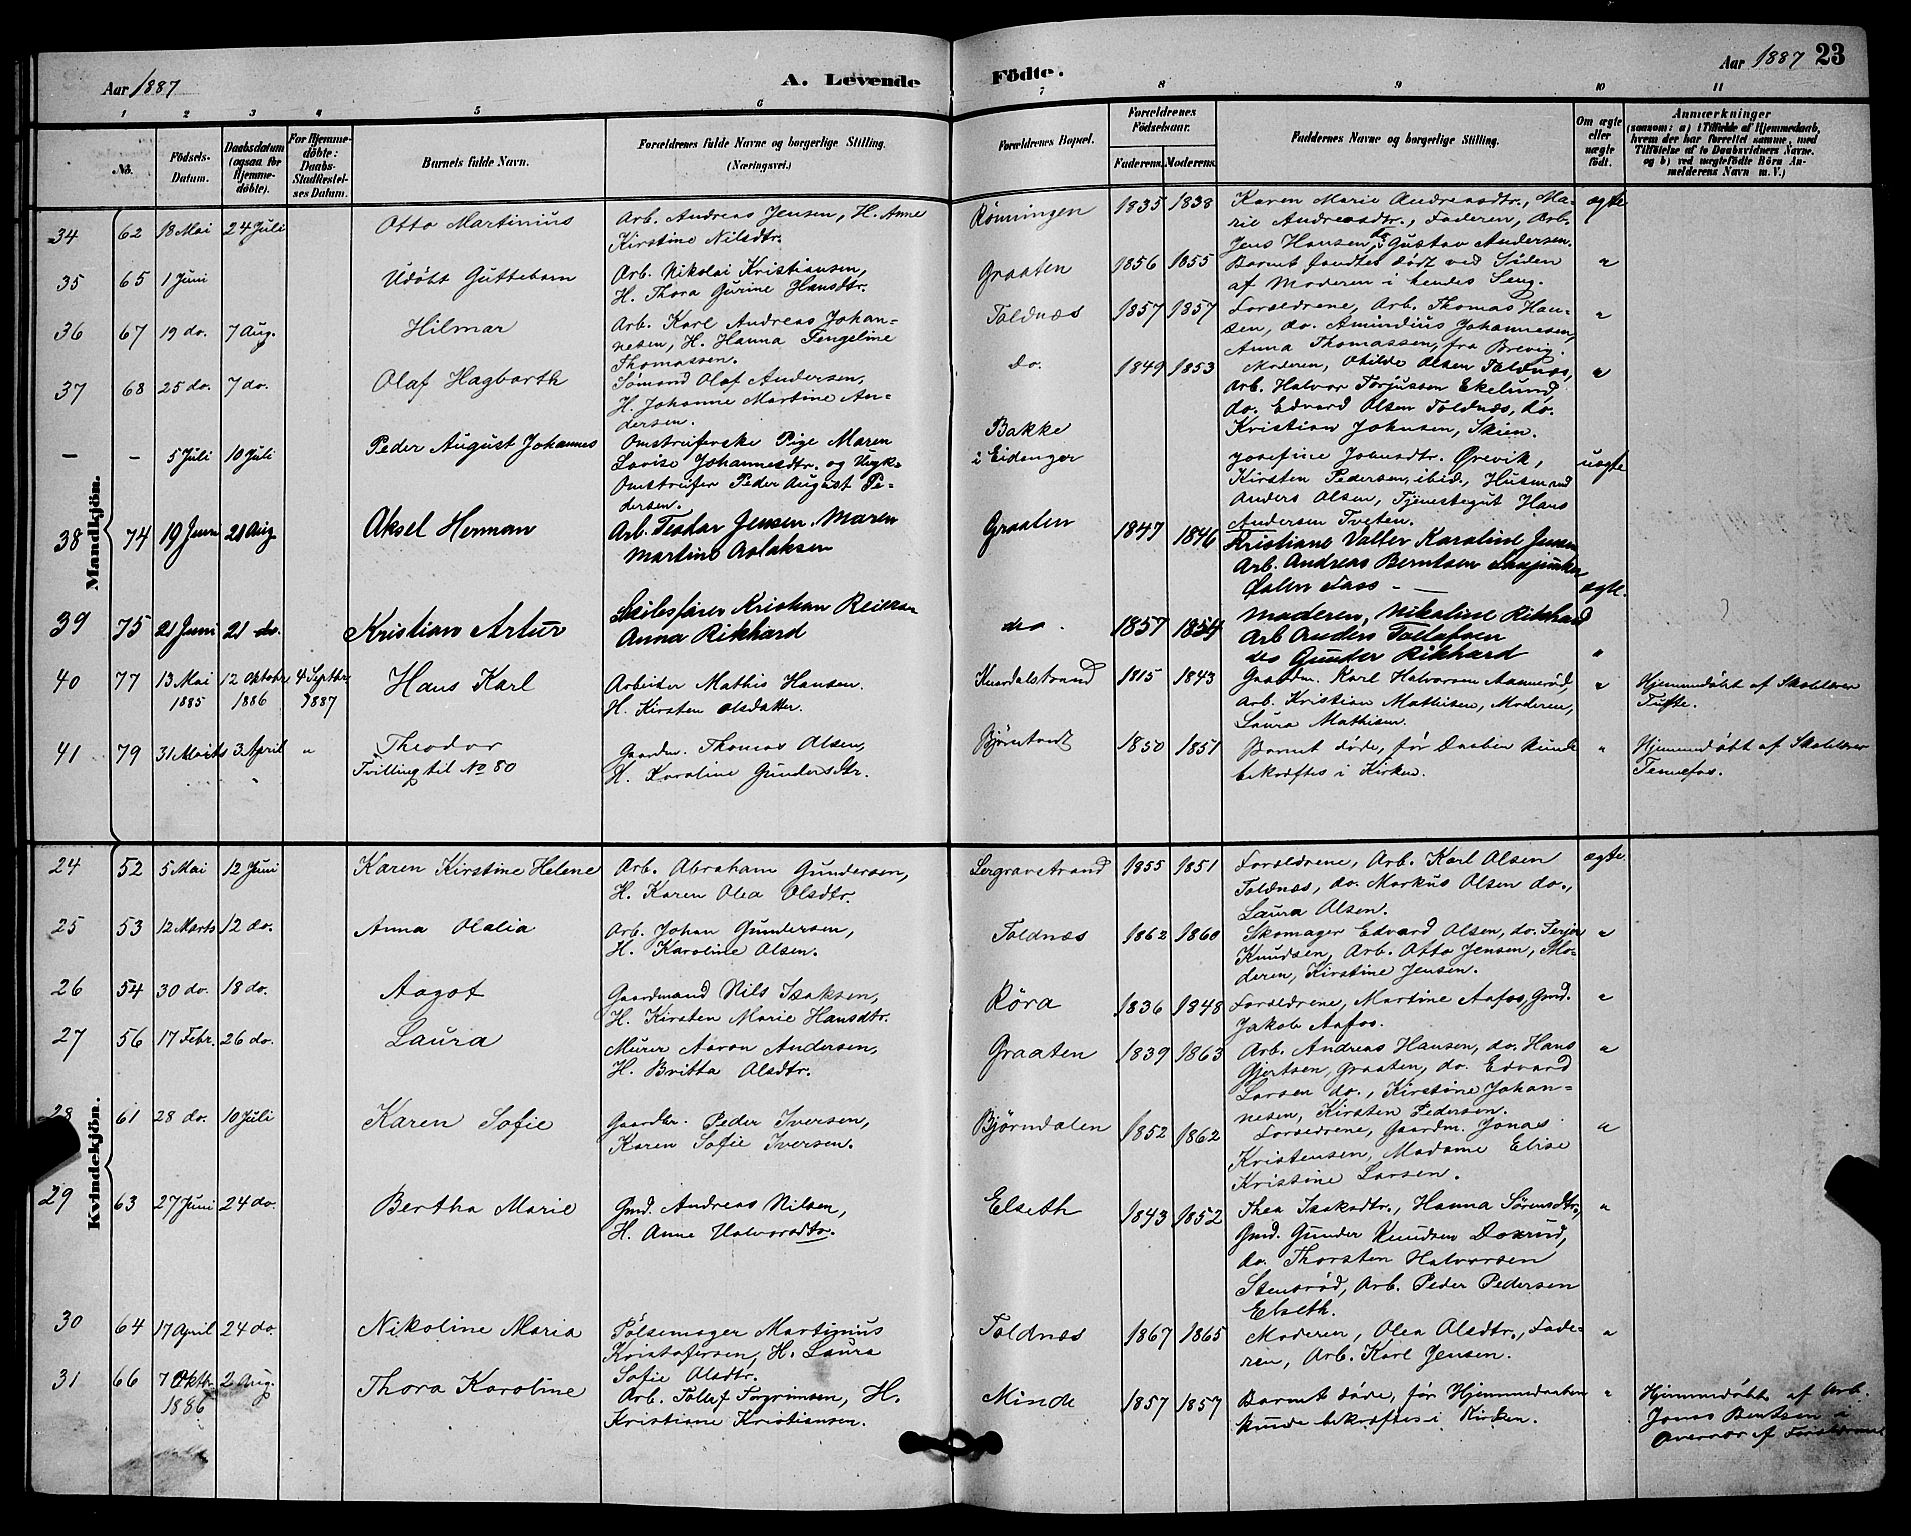 Aar 1887
A. Levende Födte.
Aar 1887 23
1 2 3 4 5 6 7 8 9 10 11
No.
Födsels-Datum.
Daabsdatum (ogsaa for Hjemme-döbte).
For Hjemme-döbte: Daabs-Stadfæstel-ses Datum.
Barnets fulde Navn.
Forældrenes fulde Navne og borgerlige Stilling. (Næringsvei.)
Forældrenes Bopæl.
Forældrenes Födselsaar.
Faderens. Moderens.
Faddernes Navne og borgerlige Stilling.
Om ægte eller uægte födt.
Anmærkninger
(saasom: a) i Tilfælde af Hjemmedaab, hvem der har forrettet samme, med Tilföielse af to Daabsvidners Navne. og b) ved uægtefödte Börn Anmelderens Navn m. V.)
Mandkjön.
34 62 18 Mai 24 Juli Otto Martinius
Arb. Andreas Jensen, H. Anne
Kirstine Nilsdtr.
Rönningen 1835 1838
Karen Marie Andreasdtr., Ma-
rie Andreasdtr., Faderen, Arb.
Jens Hansen, do. Gustav Andersen.
ægte
35 65 1 Juni Udöbt Guttebarn
Arb. Nikolai Kristiansen,
H. Thora Gurine Hansdtr.
Graaten 1856 1855
Barnet fandtes dödt ved Siden
af Moderen i hendes Seng.
"
36 67 19 do. 7 Aug. Hilmar
Arb. Karl Andreas Johan-
nesen, H. Hanna Tengeline
Thomassen.
Toldnæs 1857 1857
Forældrene, Arb. Thomas Han-
sen, do. Amundius Johannesen,
Anna Thomassen, fra Brevig.
"
37 68 25 do. 7 do. Olaf Hagbarth
Sömand Olaf Andersen,
H. Johanne Martine An-
dersen.
do. 1849 1853
Moderen, Otilde Olsen Toldnæs,
Arb. Halvor Torjussen Ekelund,
do. Edvard Olsen Toldnæs, do.
Kristian Johnsen, Skien.
"
— — 5 Juli 10 Juli Peder August Johannes
Omstreiferske Pige Maren
Lovise Johannesdtr. og Ungk.
Omstreifer Peder August Pe-
dersen.
Bakke
i Eidanger
Josefine Johnsdtr. Ørevik,
Kirsten Pedersen, ibid., Husmand
Anders Olsen, Tjenestegut Hans
Andersen Tveten.
uægte
38 74 19 Juni 21 Aug. Aksel Herman
Arb. Teodor Jensen. Maren
Martine Aslaksen
Graaten 1847 1846
Kristiane Valter Karoline Jensen
Arb. Andreas Berntsen
ægte.
39 75 21 Juni 21 do. Kristian Artur
Skibsförer Kristian Reiersen
Anna Rikhard
do. 1857 1854
Moderen, Nikoline Rikhard
Arb Anders Tollefsen
do Gunder Rikhard
"
40 77 13 Mai 1885 12 Oktobr 1886 4 Septbr 1887 Hans Karl
Arbeider Mathis Hansen.
H. Kirsten Olsdatter.
Knardalstrand 1815 1843
Gaardm. Karl Halvorsen Aannerød,
Arb. Kristian Mathisen, Moderen,
Laura Mathisen.
"
Hjemmedöbt af Skolelærer
Tufte.
41 79 31 Marts 3 April " Theodor
Tvilling til No 80
Gaardm. Thomas Olsen,
H. Karoline Gundersdtr.
Björntvedt 1850 1851
Barnet döde, för Daaben kunde
bekræftes i Kirken.
"
Hjemmedöbt af Skolelærer
Tennefos.
Kvindekjön.
24 52 5 Mai 12 Juni Karen Kirstine Helene
Arb. Abraham Gundersen,
H. Karen Olea Olsdtr.
Lergravstrand 1855 1851
Forældrene, Arb. Karl Olsen
Toldnæs, do. Markus Olsen do.,
Laura Olsen.
ægte
25 53 12 Marts 12 do. Anna Olalia
Arb. Johan Gundersen,
H. Karoline Olsen.
Toldnæs 1862 1860
Skomager Edvard Olsen, do. Terjer
Knudsen, Arb. Otto Jensen, Mo-
deren, Kirstine Jensen.
"
26 54 30 do. 18 do. Aagot
Gaardmand Nils Isaksen,
H. Kirsten Marie Hansdtr.
Röra 1836 1848
Forældrene, Martine Aafos, Gmd.
Jakob Aafos.
"
27 56 17 Febr. 26 do. Laura
Murer Aaron Andersen,
H. Britta Olsdtr.
Graaten 1839 1863
Arb. Andreas Hansen, do. Hans
Gjertsen, Graaten, do. Edvard
Larsen do., Kirstine Johan-
nesen, Kirsten Pedersen.
"
28 61 28 do. 10 Juli Karen Sofie
Gaardbr. Peder Iversen,
Karen Sofie Iversen.
Björndalen 1852 1862
Forældrene, Gaardm. Jonas
Kristensen, Madame Elise
Kristine Larsen.
"
29 63 27 Juni 24 do. Bertha Marie
Gmd. Andreas Nilsen,
H. Anne Halvorsdtr.
Elseth 1843 1852
Thea Isaksdtr., Hanna Sörensdtr.,
Gmd. Gunder Knudsen Doxrud,
do. Thorsten Halvorsen
Stensröd, Arb. Peder Pedersen
Elseth.
"
30 64 17 April 24 do. Nikoline Maria
Pölsemager Martinius
Kristofersen, H. Laura
Sofie Olsdtr.
Toldnæs 1867 1865
Moderen, Olea Olsdtr., Fade-
ren, Arb. Karl Jensen.
"
31 66 7 Oktbr. 1886 2 Aug. Thora Karoline
Arb. Tollef Torgrimsen, H.
Kristiane Kristiansen.
Minde 1857 1857
Barnet döde, för Hjemmedaaben
kunde bekræftes i Kirken.
"
Hjemmedöbt af Arb.
Jonas Bentsen i
Overvær af Forældrene